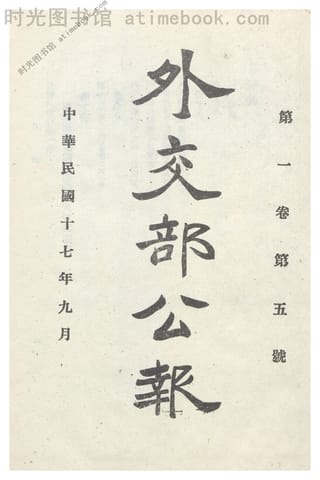 时光图书馆 atimebook.com
时光图书馆 atimebook.com
第一卷第五號
外交部公報
中華民國十七年九月
时光图书馆 atimebook.com